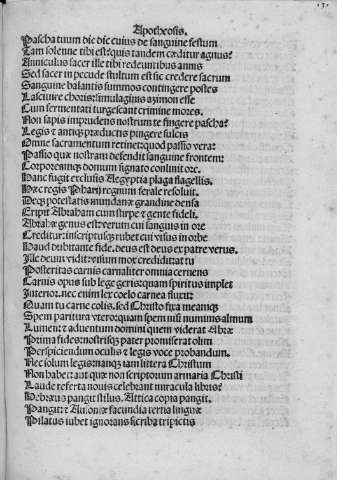 Apotheosis.
Pascha tuum dic dic cuius de sanguine festum
Tam solenne tibi est: quis tandem cæditur agnus?
Anniculus sacer ille tibi redeuntibus annis
Sed sacer in pecude stultum est sic credere sacrum
Sanguine balantis summos contingere postes
Lasciuire choris: simulaginis azimon esse
Cum fermentati turgescant crimine mores.
Non sapis imprudens nostrum te fingere pascha?
Legis & antiquæ præductis pingere sulcis
Omne sacramentum retinet quod passio vera:
Passio quæ nostram defendit sanguine frontem:
Corporeamq; domum signato conlinit ore.
Hanc fugit exclusis Aegyptia plaga flagellis.
Hæc regis Pharij regnum ferale resoluit.
Deq; potestatis mundanæ grandine densa
Eripit Abraham cum stirpe & gente fideli.
Abrahæ genus est: verum cui sanguis in ore
Creditur: inscriptusq; rubet cui visus in orbe
Haud dubitante fide. deus est deus ex patre verus.
Ille deum vidit: visum mox credidit: at tu
Posteritas carnis carnaliter omnia cernens
Carnis opus sub lege geris: quam spiritus implet
Interior. nec enim lex coelo carnea fluxit:
Quam tu carne colis. sed Christo fixa meamq;
Spem paritura vtero: quam spem nisi numinis almum
Lumen: & aduentum domini quem viderat Abræ
Prima fides: nostrisq; pater promiserat olim
Perspiciendum oculis & legis voce probandum.
Nec solum legis: namq; tam littera Christum
Non habet: aut quæ non scriptorum armaria Christi
Laude referta nouis celebrant miracula libris?
Hebræus pangit stilus. Attica copia pangit.
Pangit: & Ausoniæ facundia tertia linguæ
Pilatus iubet ignorans scriba tripictis